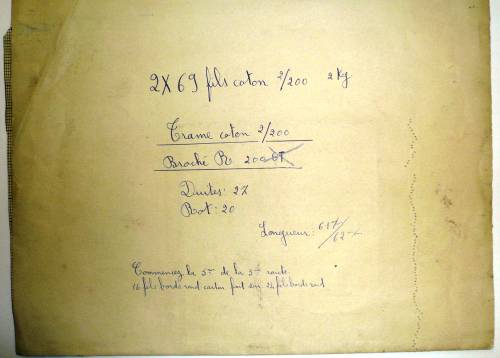 2 X 69 fils coton 2/200 2 Kg
Trame coton 2/200
Broché R 200
Duites: 27
Rot: 20
Longueur: 617/627
Commencez la 5 de la 5 route.
16 fils bords sont 24 fils bords sont